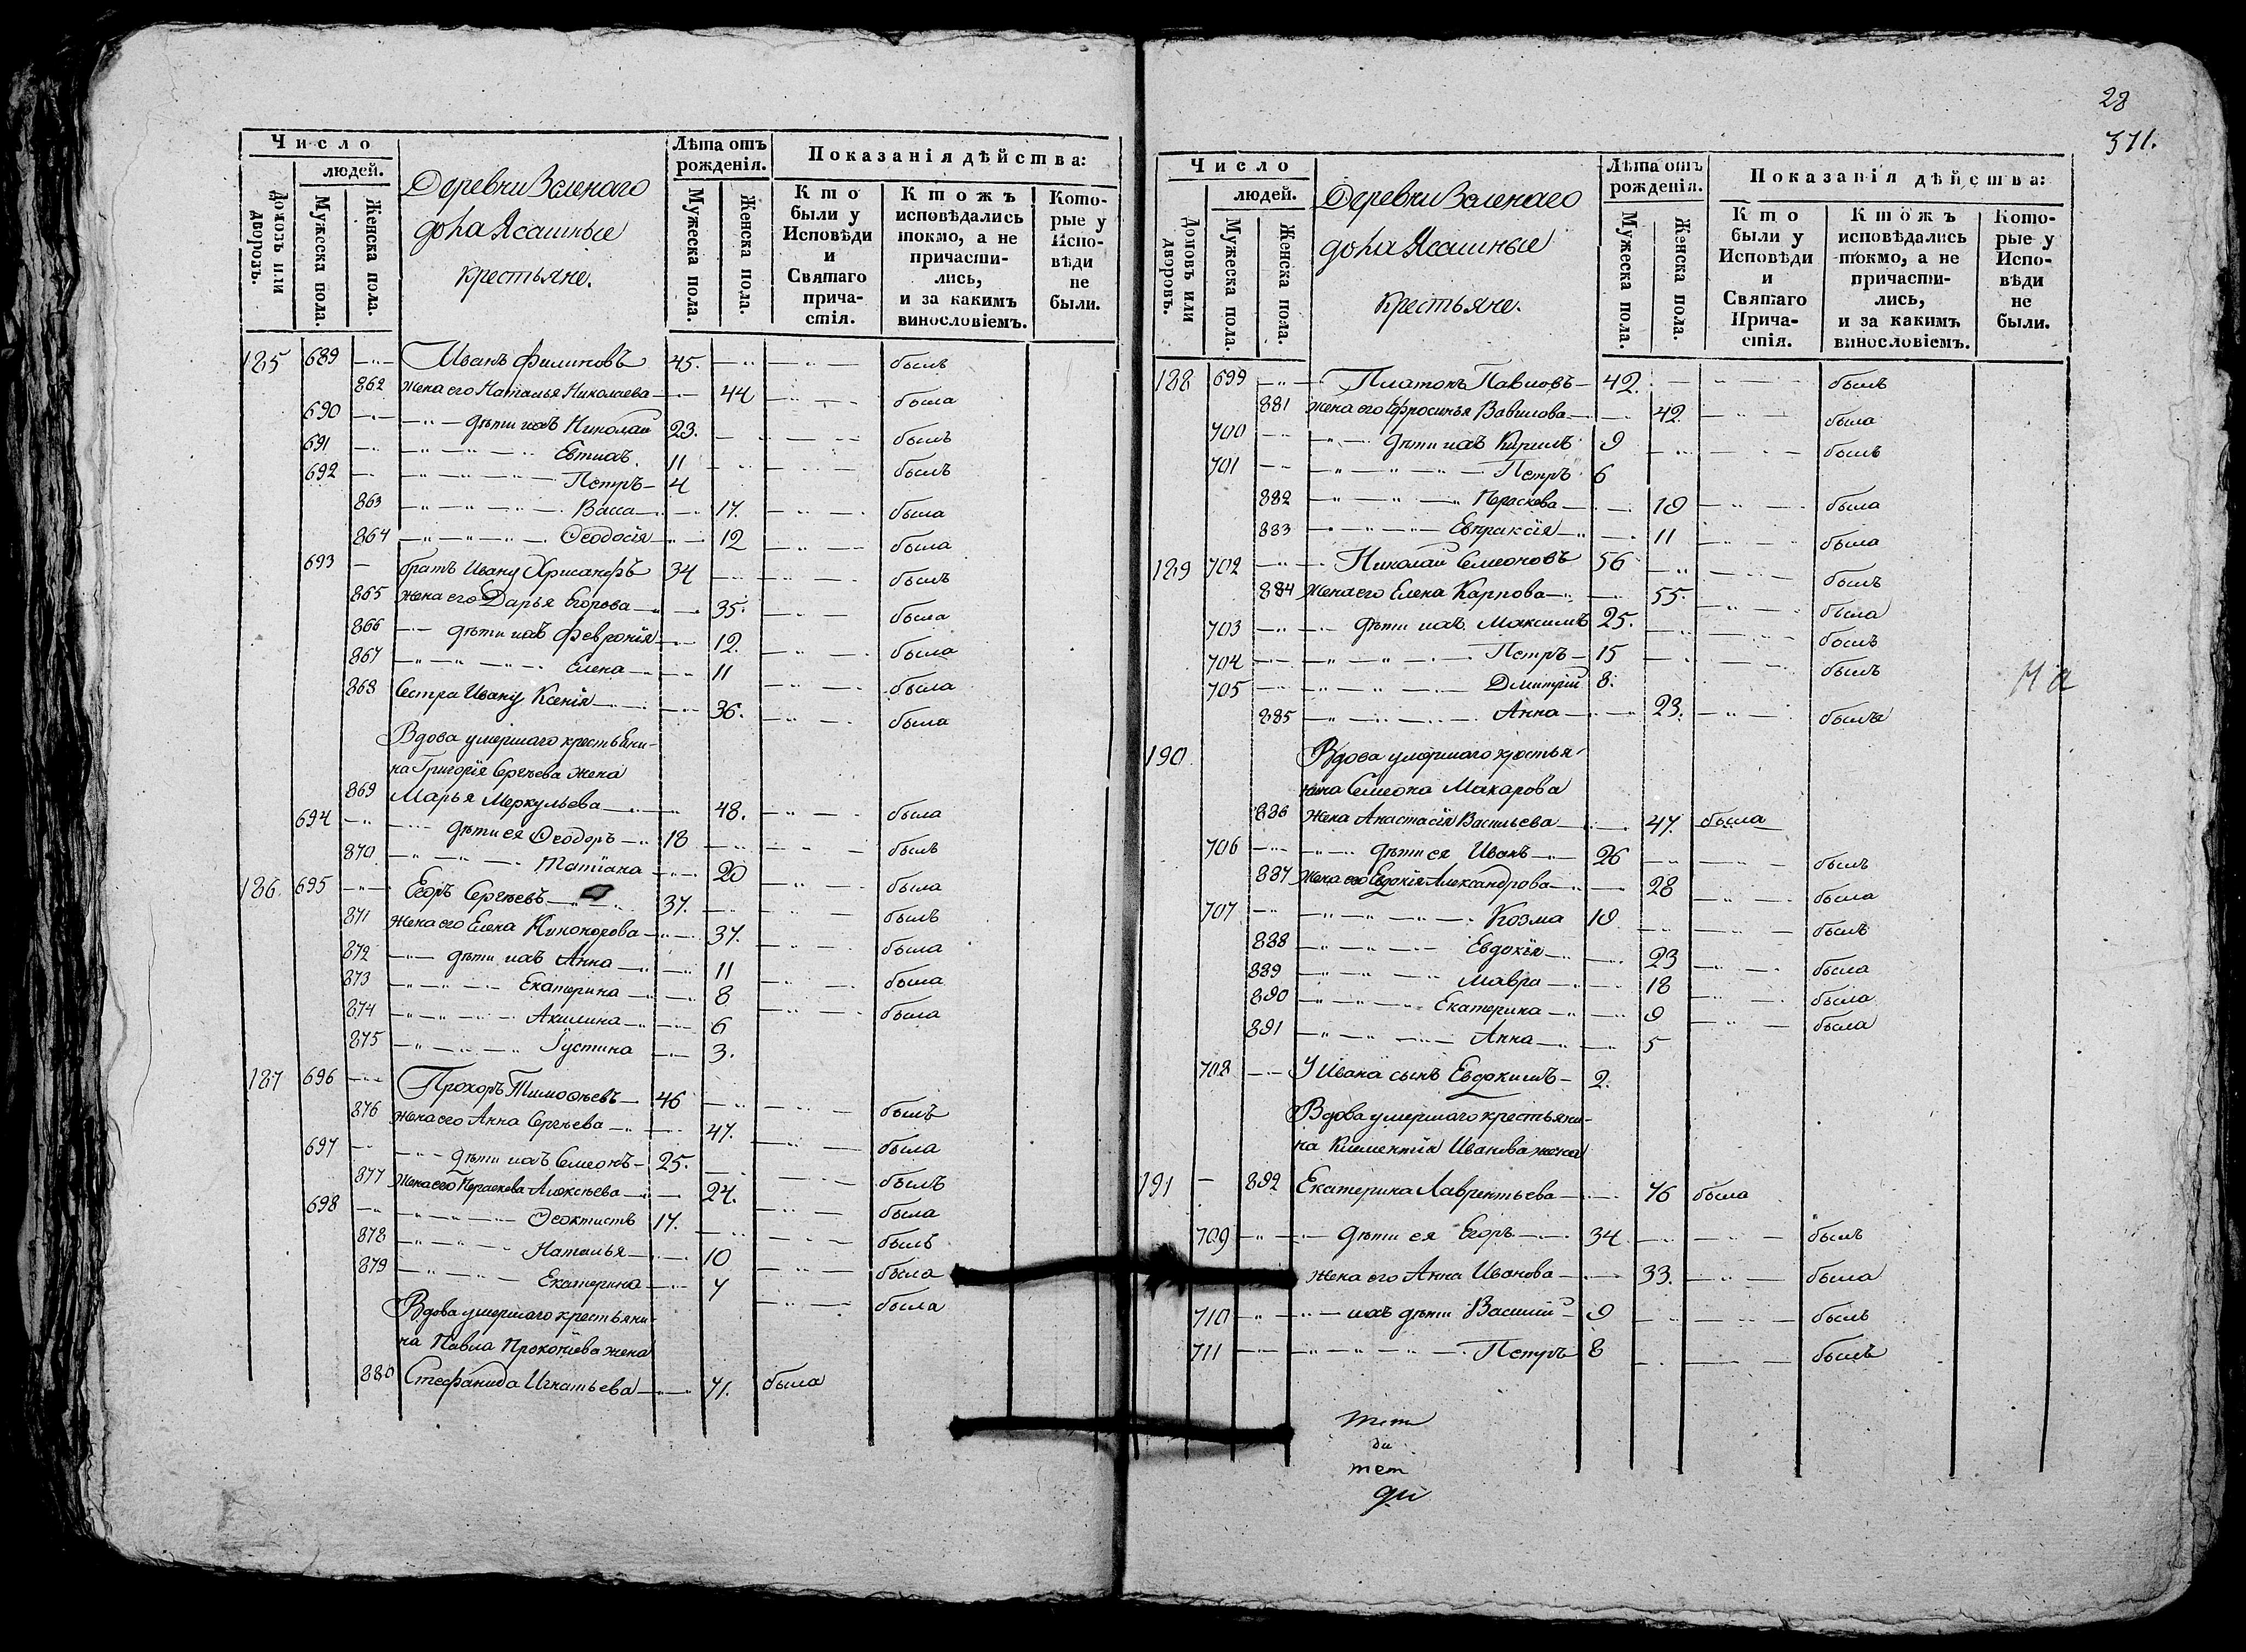 Число
людей.
Домовъ или дворовъ.
Мужеска пола.
Женска пола.
Деревни Зеленаго
дола Ясашные
крестьяне.
Лѣта отъ рожденія.
Мужеска пола.
Женска пола.
Показанія дѣйства:
Кто были у Исповѣди и Святаго причастія.
Ктожъ исповѣдались токмо, а не причастились, и за какимъ винословіемъ.
Которые у Исповѣди не были.
185 689 Иванъ Филиповъ 45. былъ
862 жена его Наталья Николаева 44 была
690 дѣти ихъ Николай 23. былъ
691 Евтихъ. 11 былъ
692 Петръ 4
863 Васса 17. была
864 Ѳеодосія 12 была
693 братъ Ивану Хрисанфъ 34 былъ
865 жена его Дарья Егорова 35. была
866 дѣти ихъ Февронія 12. была
867 Елена 11 была
868 Сестра Ивану Ксенія 36. была
Вдова умершаго крестьяни-
на Григорія Сергѣева жена
869 Марья Меркульева 48. была
694 дѣти ея Ѳеодоръ 18 былъ
870 Татіана 20 была
186. 695 Егоръ Сергѣевъ 37. былъ
871 жена его Елена Никонорова 37. была
872 дѣти ихъ Анна 11 была
873 Екатерина 8 была
874 Акилина 6
875 Іустина 3.
187 696 Прохоръ Тимоѳѣевъ 46 былъ
876 жена его Анна Сергѣева 47. была
697 дѣти ихъ Семеонъ 25. былъ
877 жена его Параскева Алексѣева 24. была
698 Ѳеоктистъ 17. былъ
878 Наталья 10 была
879 Екатерина 7 была
Вдова умершаго крестьяни-
на Павла Прокопіева жена
880 Стефанида Игнатьева 71. была
28
371.
Число
людей.
Домовъ или дворовъ.
Мужеска пола.
Женска пола.
Деревни Зеленаго
дола Ясашные
крестьяне.
Лѣта отъ рожденія.
Мужеска пола.
Женска пола.
Показанія дѣйства:
Кто были у Исповѣди и Святаго Причастія.
Ктожъ исповѣдались токмо, а не причастились, и за какимъ винословіемъ.
Которые у Исповѣди не были.
188 699 Платонъ Павловъ 42. былъ
881 жена его Ефросинья Вавилова 42. была
700 дѣти ихъ Кирилъ 9 былъ
701 Петръ 6
882 Параскева 19 была
883 Евпраксія 11 была
189 702 Николай Семеоновъ 56 былъ
884 жена его Елена Карпова 55. была
703 дѣти ихъ Максимъ 25. былъ
704 Петръ 15 былъ
705 Дмитрій 8.
885 Анна 23. была
190 Вдова умершаго крестья-
нина Семеона Макарова
886 жена Анастасія Васильева 47. была
706 дѣти ея Иванъ 26 былъ
887 жена его Евдокія Александрова 28 была
707 Козма 19 былъ
888 Евдокія 23 была
889 Мавра 18 была
890 Екатерина 9 была
891 Анна 5
708 У Ивана сынъ Евдокимъ 2.
Вдова умершаго крестьяни-
на Климентія Иванова жена
191 892 Екатерина Лаврентьева 76 была
709 дѣти ея Егоръ 34 былъ
жена его Анна Иванова 33. была
710 ихъ дѣти Василій 9 былъ
711 Петръ 8 былъ